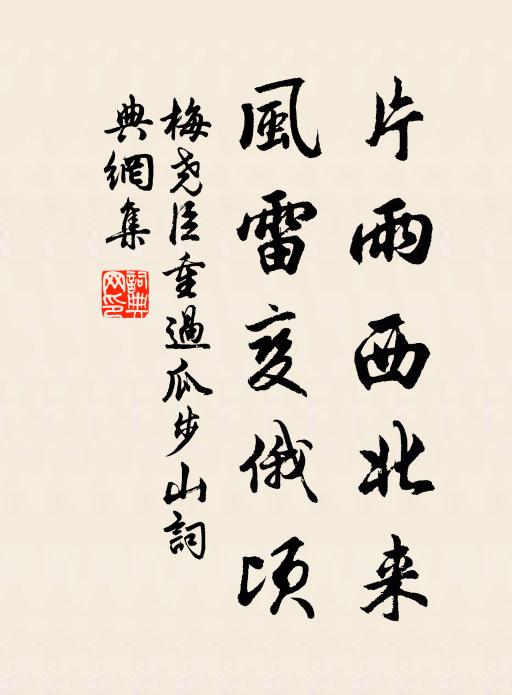 片雨西北来
風雷变俄顷
梅尧臣重過瓜步山詞
典網集
詞典
网印